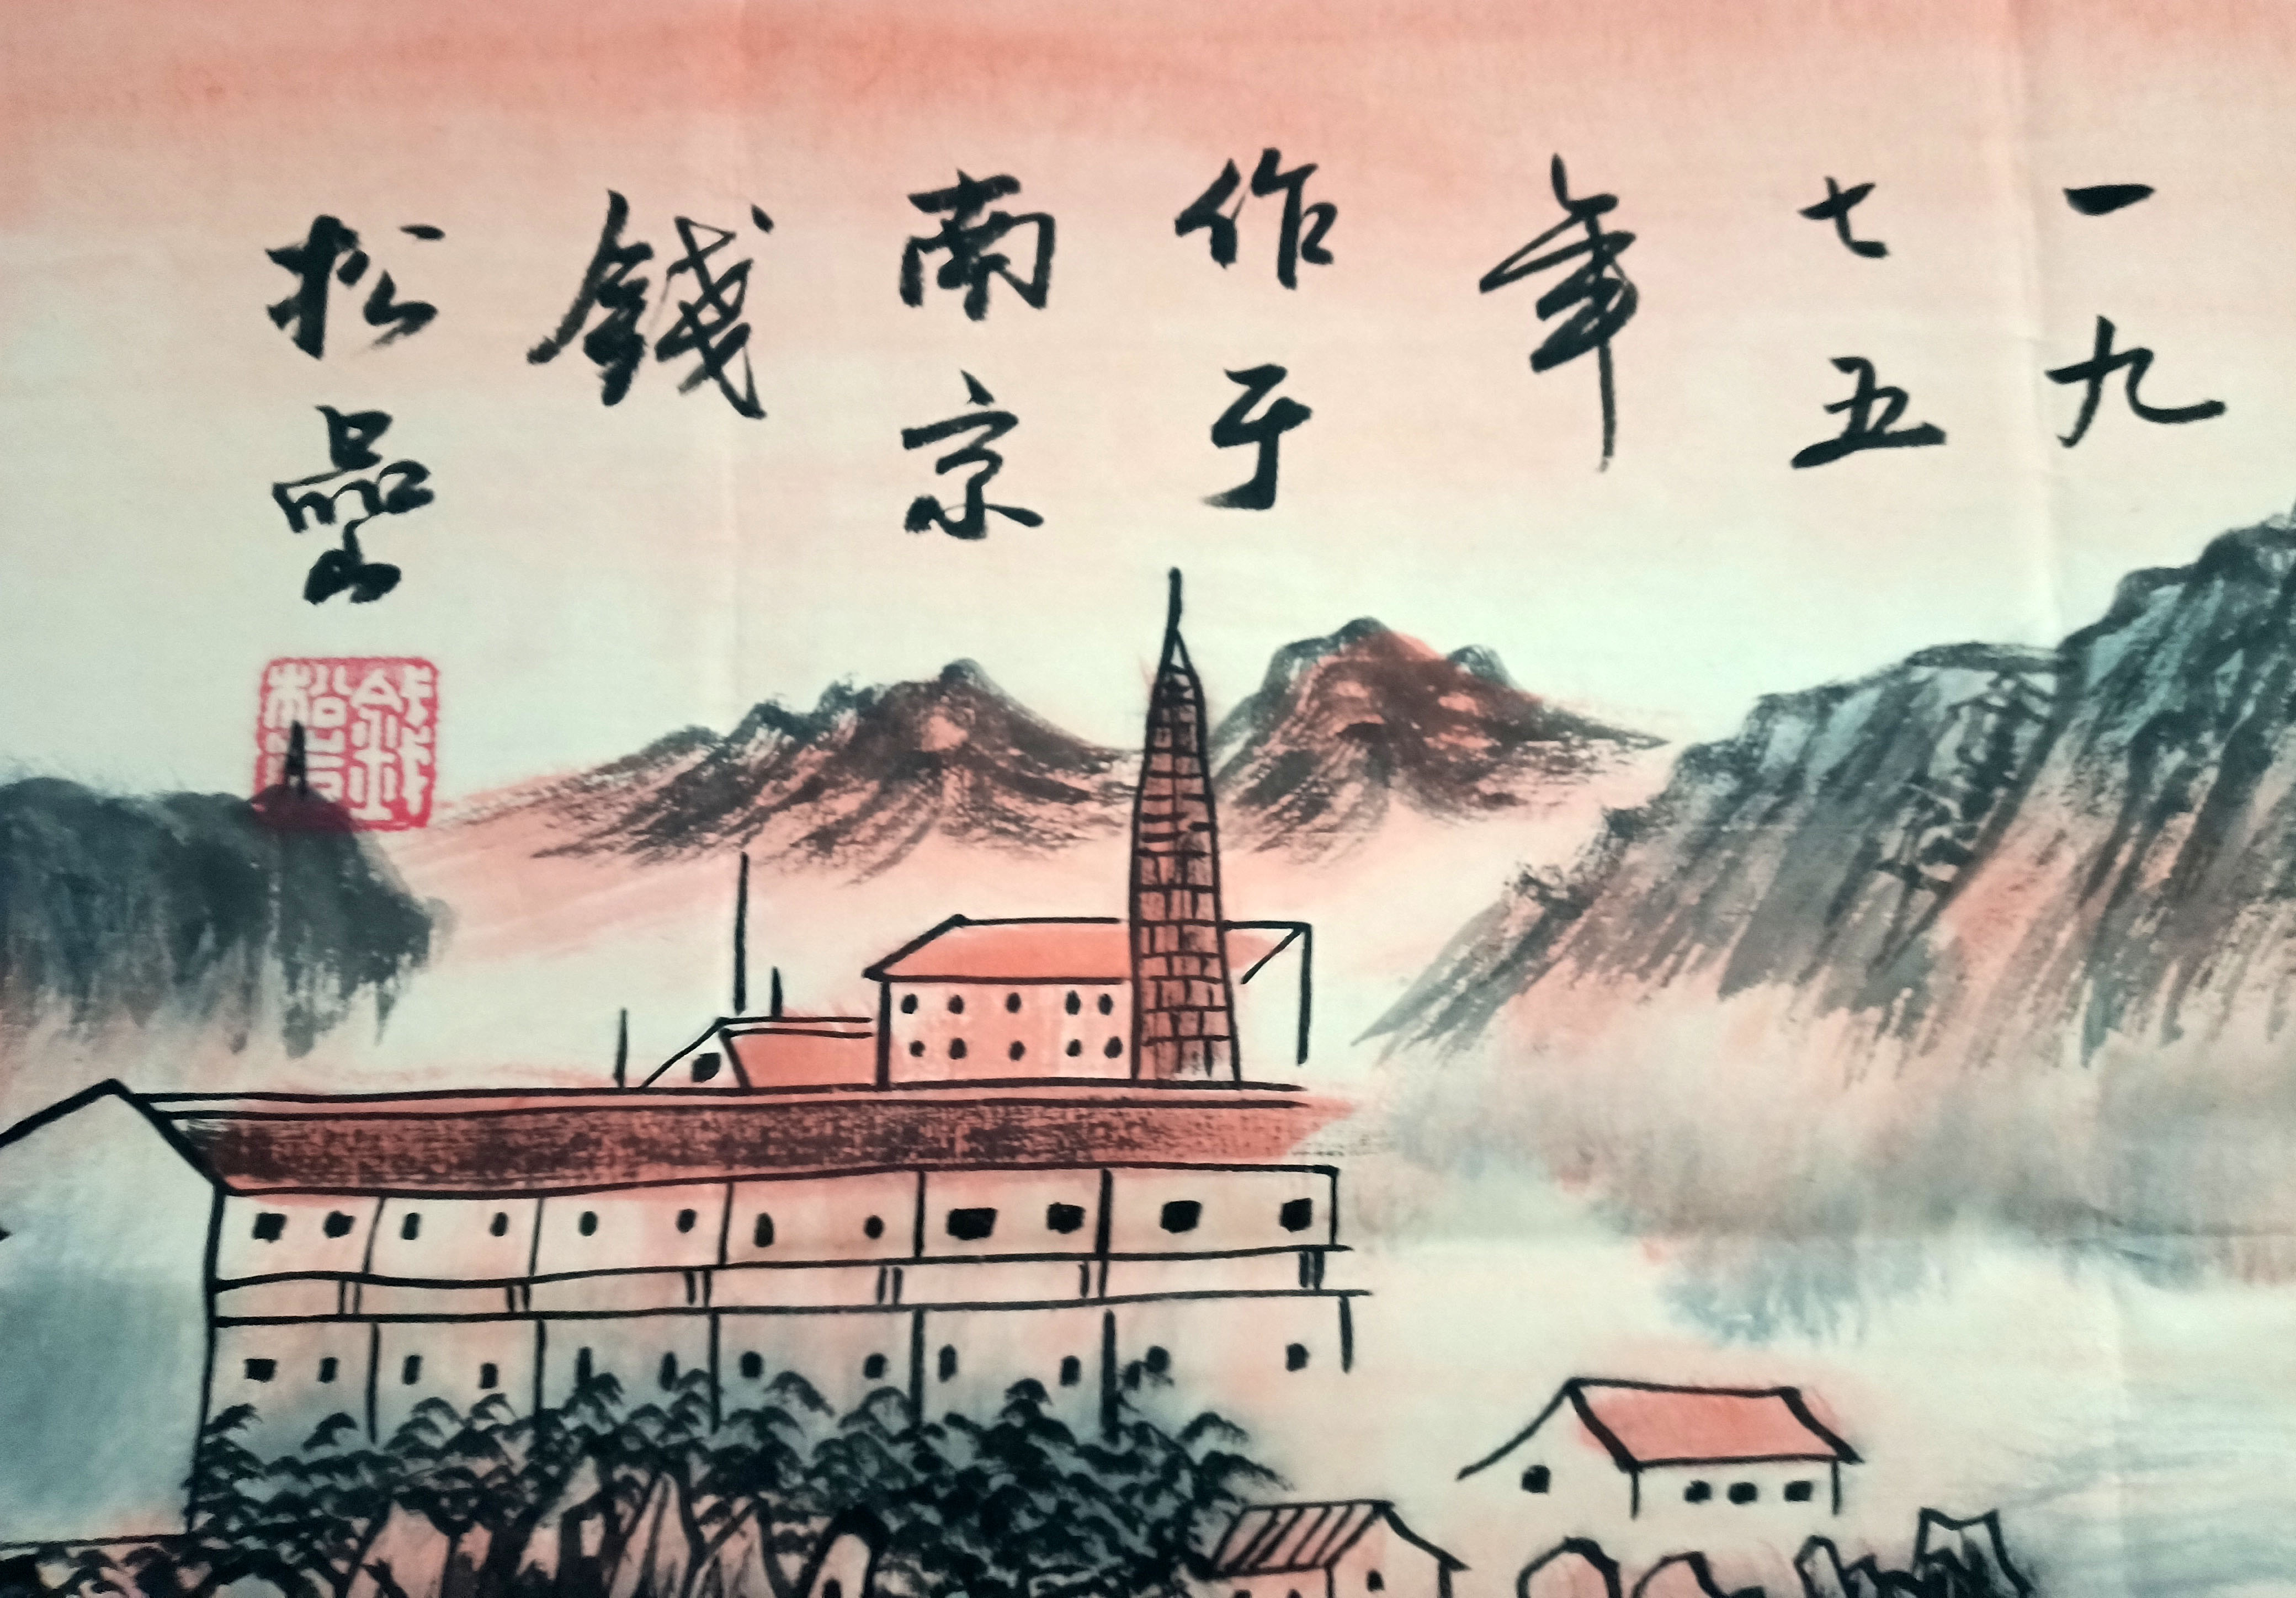 一九
七五
年
作于
南京
錢
松嵒